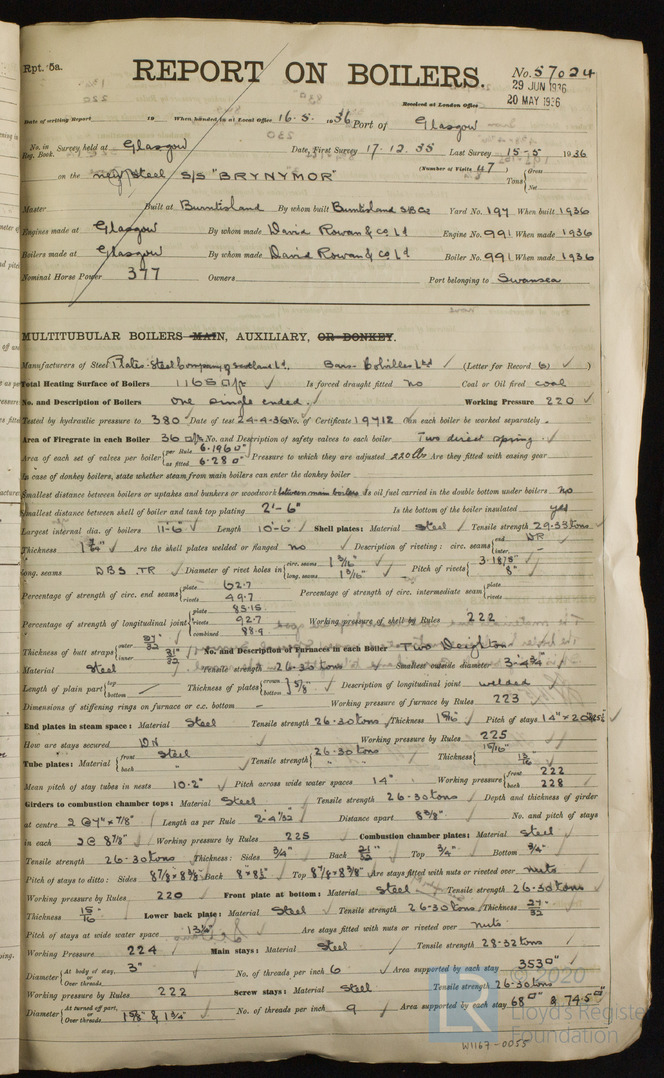 Rpt. 5a.
REPORT ON BOILERS.
No. 57024
29 JUN 1936
20 MAY 1936
Received at London Office
Date of writing Report 19 When handed in at Local Office 16.5. 1936 Port of Glasgow
No. in Reg. Book. Survey held at Glasgow Date, First Survey 17.12.35 Last Survey 15-5 1936
on the new Steel S/S "BRYNYMOR" (Number of Visits 47) Tons Gross Net
Master Built at Burntisland By whom built Burntisland S.B.Co Yard No. 197 When built 1936
Engines made at Glasgow By whom made David Rowan & Co Ld Engine No. 991 When made 1936
Boilers made at Glasgow By whom made David Rowan & Co Ld Boiler No. 991 When made 1936
Nominal Horse Power 377 Owners Port belonging to Swansea
MULTITUBULAR BOILERS MAIN, AUXILIARY, OR DONKEY.
Manufacturers of Steel Plates - Steel Company of Scotland Ld. Bars - Colvilles Ltd (Letter for Record (S) )
Total Heating Surface of Boilers 1165 Is forced draught fitted no Coal or Oil fired coal
No. and Description of Boilers One single ended. Working Pressure 220
Tested by hydraulic pressure to 380 Date of test 24-4-36 No. of Certificate 19712 Can each boiler be worked separately
Area of Firegrate in each Boiler 36 No. and Description of safety valves to each boiler Two direct spring.
Area of each set of valves per boiler per Rule 6.196 as fitted 6.28 Pressure to which they are adjusted 220 lbs Are they fitted with easing gear
In case of donkey boilers, state whether steam from main boilers can enter the donkey boiler
Smallest distance between boilers or uptakes and bunkers or woodwork between main boilers Is oil fuel carried in the double bottom under boilers no
Smallest distance between shell of boiler and tank top plating 2'-6" Is the bottom of the boiler insulated yes
Largest internal dia. of boilers 11'-6" Length 10'-6" Shell plates: Material Steel Tensile strength 29-33 tons
Thickness Are the shell plates welded or flanged no Description of riveting: circ. seams end DR inter.
long. seams DBS. TR Diameter of rivet holes in circ. seams 1 3/16" long. seams 1 3/16" Pitch of rivets 8"
Percentage of strength of circ. end seams plate 62.7 rivets 49.7 Percentage of strength of circ. intermediate seam plate rivets
Percentage of strength of longitudinal joint plate 85.15 rivets 92.7 combined 88.9 Working pressure of shell by Rules 222
Thickness of butt straps outer inner No. and Description of Furnaces in each Boiler Two Deighton
Material Steel Tensile strength 26-30 tons Smallest outside diameter 3'-4 3/4"
Length of plain part top bottom Thickness of plates crown bottom 5/8" Description of longitudinal joint welded
Dimensions of stiffening rings on furnace or c.c. bottom Working pressure of furnace by Rules 223
End plates in steam space: Material Steel Tensile strength 26-30 tons Thickness Pitch of stays
How are stays secured DN Working pressure by Rules 225
Tube plates: Material front Steel back " Tensile strength 26-30 tons Thickness 15/16" 13/16
Mean pitch of stay tubes in nests 10.2" Pitch across wide water spaces 14" Working pressure front 222 back 228
Girders to combustion chamber tops: Material Steel Tensile strength 26-30 tons Depth and thickness of girder
at centre 2 @ 7" x 7/8" Length as per Rule 2'-4 Distance apart 8 3/8" No. and pitch of stays
in each 2 @ 8 7/8" Working pressure by Rules 225 Combustion chamber plates: Material Steel
Tensile strength 26-30 tons Thickness: Sides 3/4" Back 21/32 Top 3/4" Bottom 3/4"
Pitch of stays to ditto: Sides 8 7/8 x 8 3/8 Back Top 8 7/8 x 8 3/8 Are stays fitted with nuts or riveted over nuts
Working pressure by Rules 220 Front plate at bottom: Material Steel Tensile strength 26-30 tons
Thickness 15/16 Lower back plate: Material Steel Tensile strength 26-30 tons Thickness 27/32
Pitch of stays at wide water space Are stays fitted with nuts or riveted over nuts.
Working Pressure 224 Main stays: Material Steel Tensile strength 28-32 tons
Diameter At body of stay, or Over threads 3" No. of threads per inch 6 Area supported by each stay 353
Working pressure by Rules 222 Screw stays: Material Steel Tensile strength 26-30 tons
Diameter At turned off part, or Over threads 1 5/8" & 1 3/4" No. of threads per inch 9 Area supported by each stay 68 & 74.5
© 2020
LR Lloyd's Register
Foundation
W1167-0055